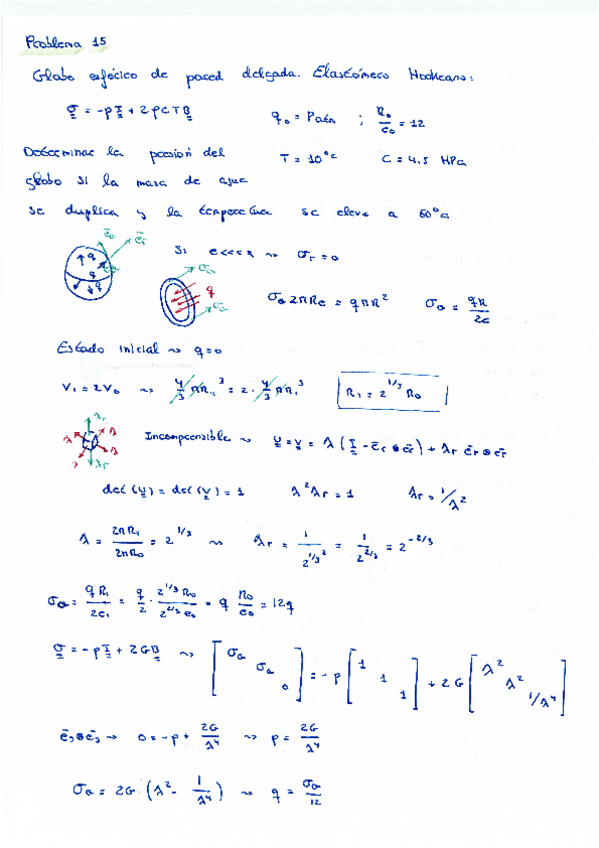 Problema 15
Globo esférico de pared delgada. Elastómero Hookeano:
σ = -pI + 2ρCTB    q₀ = Patm ; R₀/e₀ = 12
Determinar la presión del    T = 10°C    C = 4,5 MPa
globo si la masa de agua
se duplica y la temperatura se eleva a 60°C
Si e<<<R ⇝ σr = 0
σθ 2πRe = qπR²    σθ = qR/2e
Estado inicial ⇝ q=0
V₁ = 2V₀ ⇝ 4/3 πR₁³ = 2· 4/3 πR₁³    R₁ = 2^(1/3) R₀
Incompresible ⇝ U = V = λ (I - ēr⊗ēr) + λr ēr⊗ēr
det(U) = det(V) = 1    λ²λr = 1    λr = 1/λ²
λ = 2πR₁/2πR₀ = 2^(1/3) ⇝ λr = 1/2^(1/3)² = 1/2^(2/3) = 2^(-2/3)
σθ = qR₁/2e₁ = q/2 · 2^(1/3)R₀/2^(2/3)e₀ = q R₀/e₀ = 12q
σ = -pI + 2GB ⇝ [σθ σθ 0] = -p [1 1 1] + 2G [λ² λ² 1/λ⁴]
ē₃⊗ē₃ → 0 = -p + 2G/λ⁴ ⇝ p = 2G/λ⁴
σθ = 2G (λ² - 1/λ⁴) ⇝ q = σθ/12